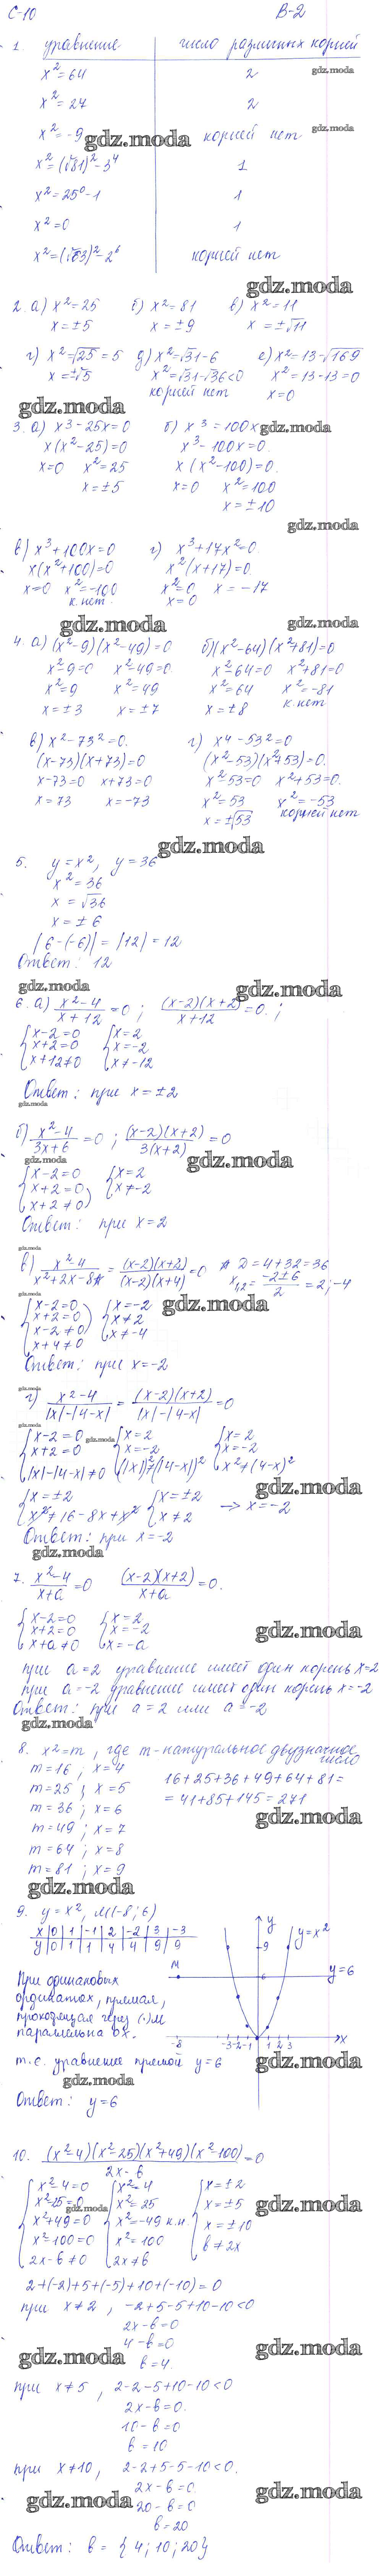 С-10 В-2
1 уравнение число различных корней
x²=64 2
gdz.moda
x²=27 2
x²=-9 корней нет
gdz.moda
gdz.moda
x²=(√81)²-3⁴ 1
x²=25⁰-1 1
x²=0 1
x²=(√63)²-2⁶ корней нет
gdz.moda
2. а) x²=25 б) x²=81 в) x²=11
x=±5 x=±9 x=±√11
г) x²=√25=5 д) x²=√31-6 е) x²=13-√169
x=±√5 x²=√31-√36<0 x²=13-13=0
корней нет x=0
gdz.moda
3. а) x³-25x=0 б) x³=100x
gdz.moda
x(x²-25)=0 x³-100x=0.
x=0 x²=25 x(x²-100)=0.
x=±5 x=0 x²=100
x=±10
gdz.moda
в) x³+100x=0 г) x³+17x²=0.
x(x²+100)=0 x²(x+17)=0
x=0 x²=-100 x²=0 x=-17
к.нет. x=0
gdz.moda
4. а) (x²-9)(x²-49)=0 б) (x²-64)(x²+81)=0
x²-9=0 x²-49=0. x²-64=0 x²+81=0
x²=9 x²=49 x²=64 x²=-81
x=±3 x=±7 x=±8 к.нет
в) x²-73²=0. г) x⁴-53²=0
(x-73)(x+73)=0 (x²-53)(x²+53)=0.
x-73=0 x+73=0 x²-53=0 x²+53=0.
x=73 x=-73 x²=53 x²=-53
x=±√53 корней нет
gdz.moda
5. y=x², y=36
x²=36
x=√36
x=±6
|6-(-6)|=|12|=12
Ответ: 12
gdz.moda
gdz.moda
6. а) (x²-4)/(x+12)=0; ((x-2)(x+2))/(x+12)=0.;
{x-2=0 {x=2
x+2=0 x=-2
x+12≠0 x≠-12
Ответ: при x=±2
gdz.moda
б) (x²-4)/(3x+6)=0; ((x-2)(x+2))/(3(x+2))=0
gdz.moda
gdz.moda
{x-2=0 {x=2
x+2=0 x≠-2
x+2≠0
Ответ: при x=2
gdz.moda
в) (x²-4)/(x²+2x-8)=((x-2)(x+2))/((x-2)(x+4))=0 D=4+32=36
x₁,₂=(-2±6)/2=2;-4
{x-2=0 {x=-2
x+2=0 x≠2
x-2≠0 x≠-4
x+4≠0
gdz.moda
Ответ: при x=-2
gdz.moda
г) (x²-4)/(|x|-|4-x|)=((x-2)(x+2))/(|x|-|4-x|)=0
{x-2=0 {x=2 {x=2
x+2=0 x=-2 x=-2
|x|-|4-x|≠0 (|x|)²≠(|4-x|)² x²≠(4-x)²
gdz.moda
gdz.moda
{x=±2 {x=±2 → x=-2
x²≠16-8x+x² x≠2
Ответ: при x=-2
gdz.moda
7. (x²-4)/(x+a)=0 ((x-2)(x+2))/(x+a)=0.
{x-2=0 {x=2
x+2=0 x=-2
x+a≠0 x=-a
gdz.moda
при a=2 уравнение имеет один корень x=2
при a=-2 уравнение имеет один корень x=-2
Ответ: при a=2 или a=-2
gdz.moda
8. x²=m, где m-натуральное двузначное число
m=16, x=4
m=25; x=5 16+25+36+49+64+81=
m=36; x=6 =41+85+145=271
m=49; x=7
gdz.moda
m=64; x=8
m=81; x=9
gdz.moda
9. y=x², M(-8;6)
x 0 1 -1 2 -2 3 -3
y 0 1 1 4 4 9 9
y y=x²
9
M 6 y=6
-8 -3 -2 -1 1 2 3 x
При одинаковых
ординатах, прямая,
проходящая через (·)M
параллельна OX.
т.е. уравнение прямой y=6
gdz.moda
gdz.moda
Ответ: y=6
10. ((x²-4)(x²-25)(x²+49)(x²-100))/(2x-b)=0
{x²-4=0 {x²=4 {x=±2
x²-25=0 x²=25 x=±5
x²+49=0 x²=-49 к.н x=±10
x²-100=0 x²=100 b≠2x
2x-b≠0 2x≠b
gdz.moda
gdz.moda
2+(-2)+5+(-5)+10+(-10)=0
при x≠2, -2+5-5+10-10<0
2x-b=0
4-b=0
b=4.
gdz.moda
gdz.moda
при x≠5, 2-2-5+10-10<0
2x-b=0.
10-b=0
b=10
при x≠10, 2-2+5-5-10<0.
2x-b=0.
20-b=0
b=20
gdz.moda
gdz.moda
Ответ: b={4;10;20}